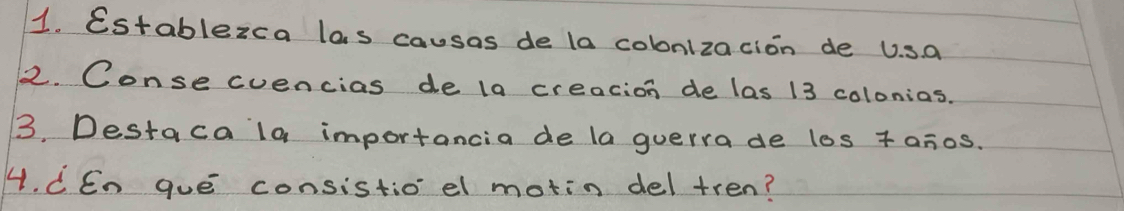 1. Establezca las causas de la colonización de U.S.a
2. Consecuencias de la creación de las 13 colonias.
3. Destaca la importancia de la guerra de los 7 años.
4. ¿En qué consistió el motin del tren?